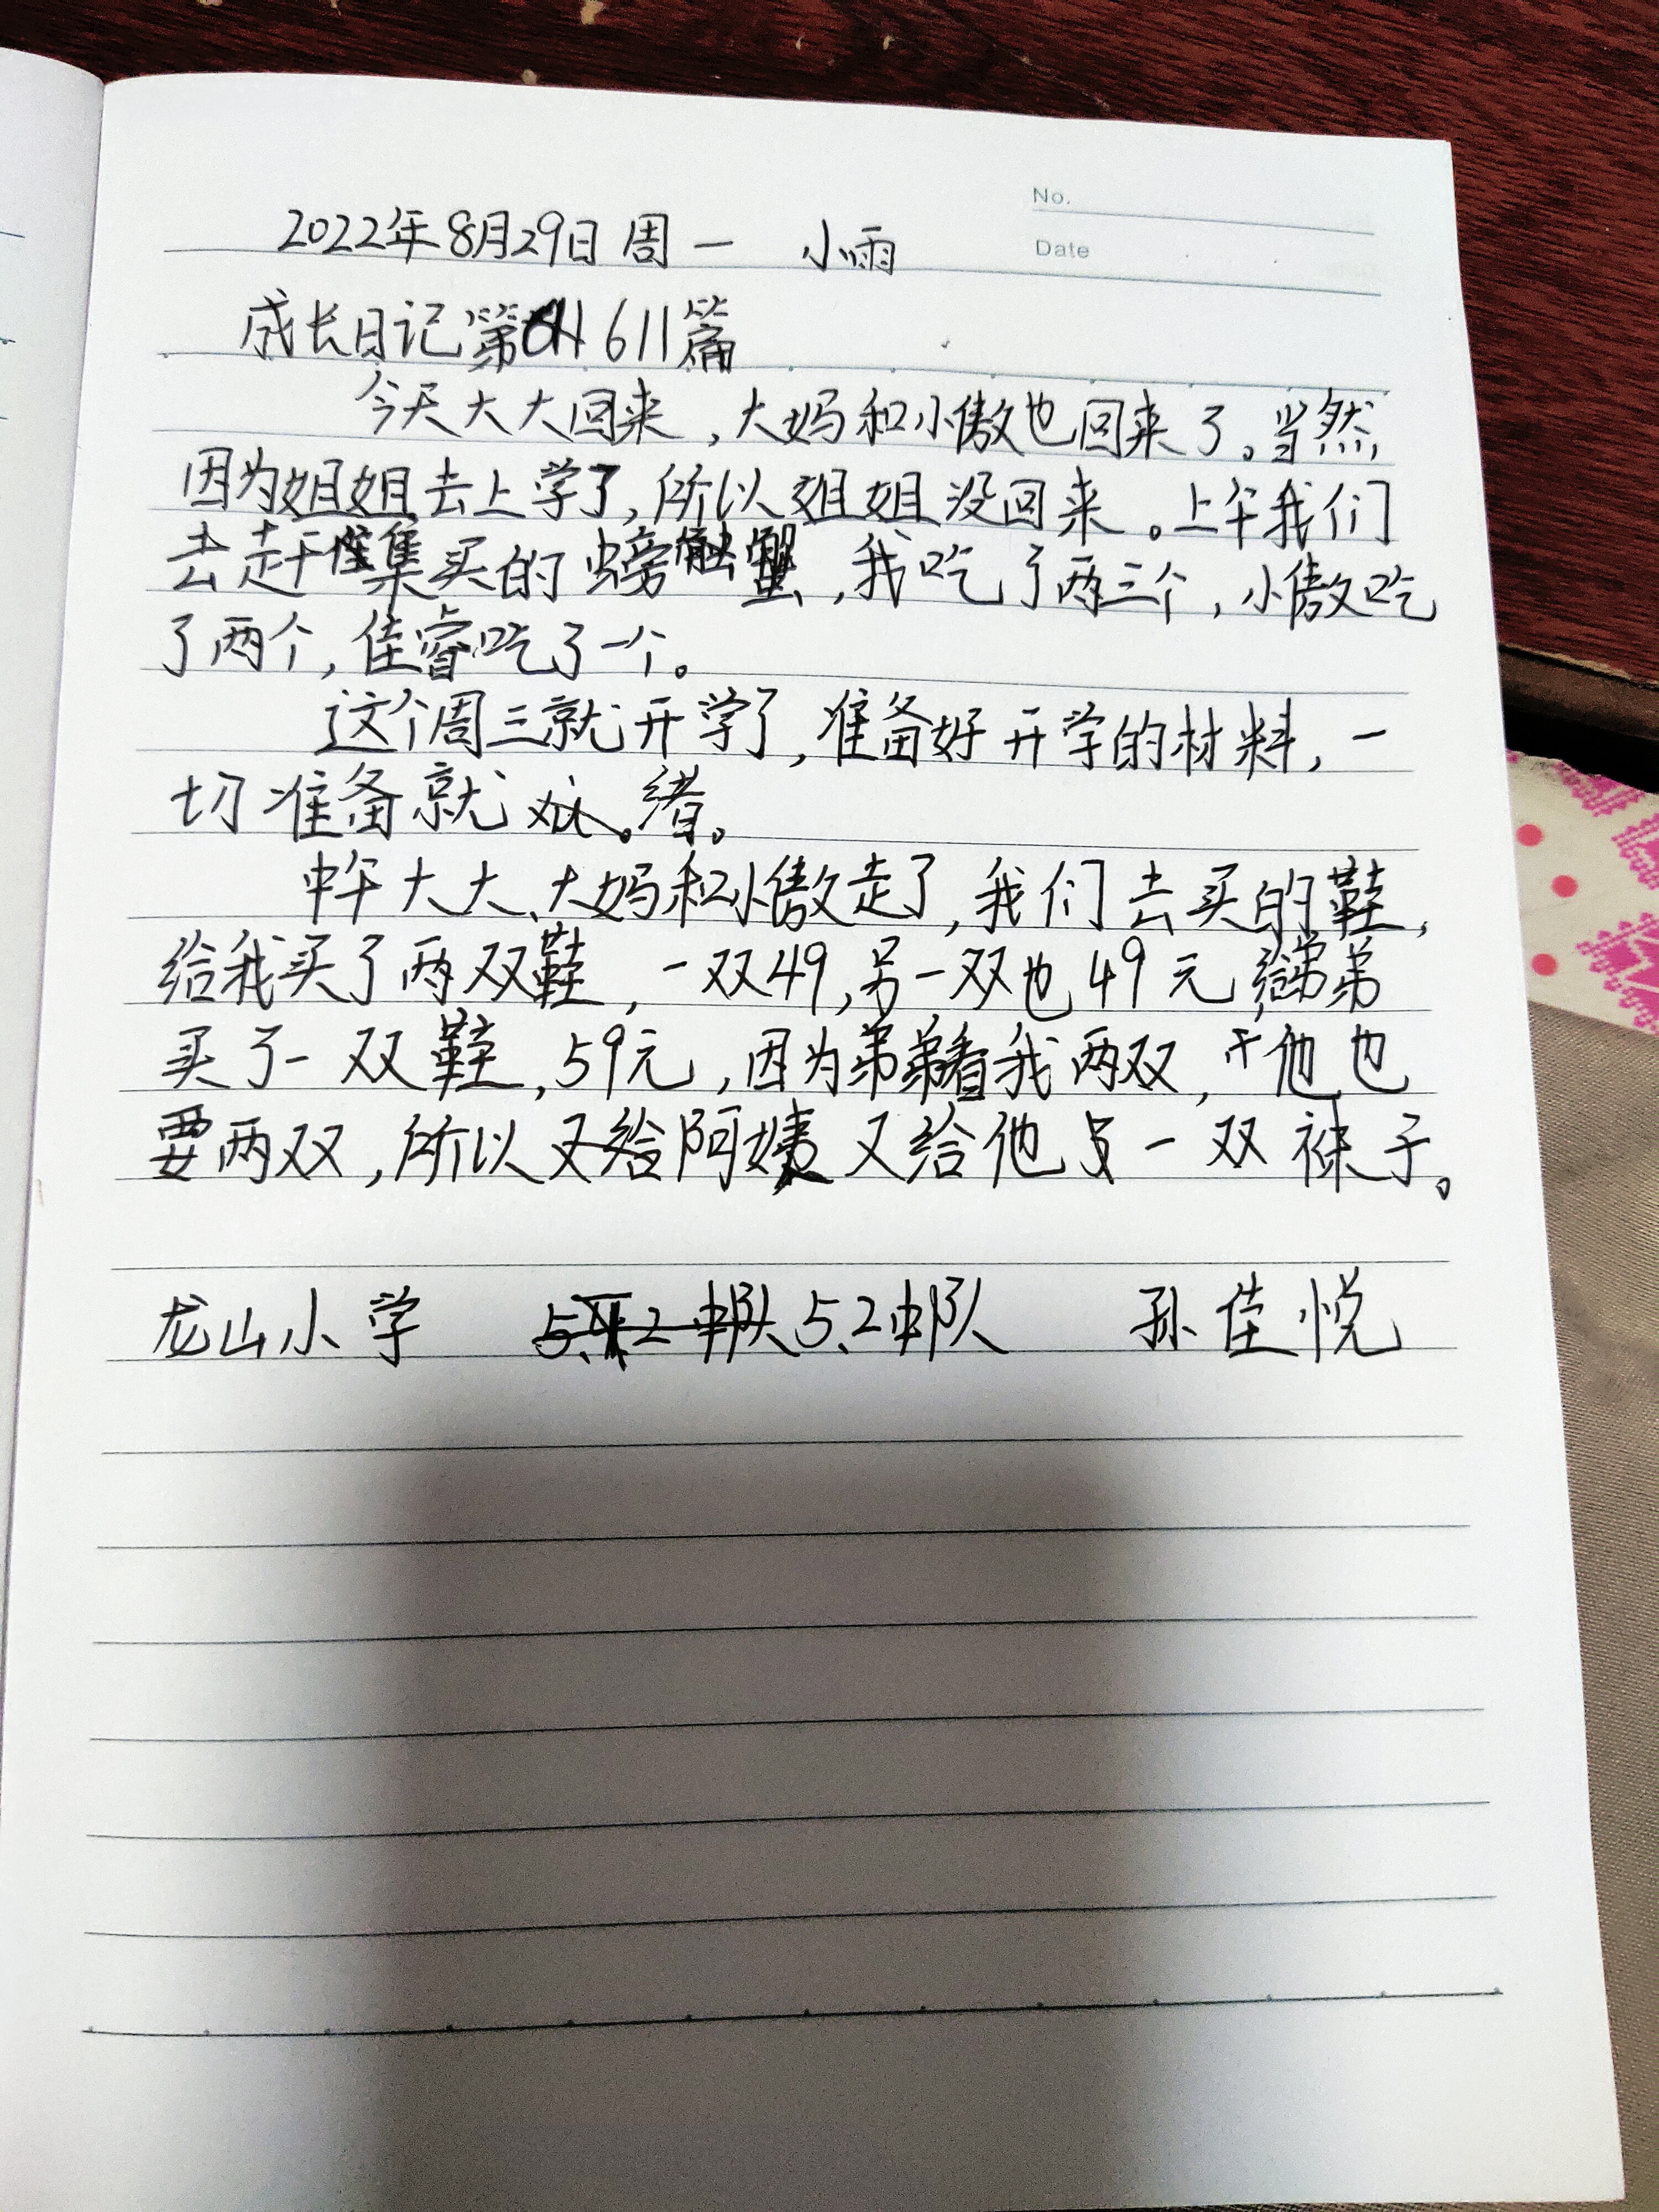 No.
Date
2022年8月29日 周一 小雨
成长日记第611篇
今天大大回来，大妈和小傲也回来了。当然
因为姐姐去上学了，所以姐姐没回来。上午我们
去赶集买的螃蟹，我吃了两三个，小傲吃
了两个，佳睿吃了一个。
这个周三就开学了，准备好开学的材料，一
切准备就绪。
中午大大、大妈和小傲走了，我们去买的鞋，
给我买了两双鞋，一双49，另一双也49元，给弟弟
买了一双鞋，59元，因为弟弟看我两双，他也
要两双，所以又给阿姨又给他一双袜子。
龙山小学 5.2中队 5.2中队 孙佳悦